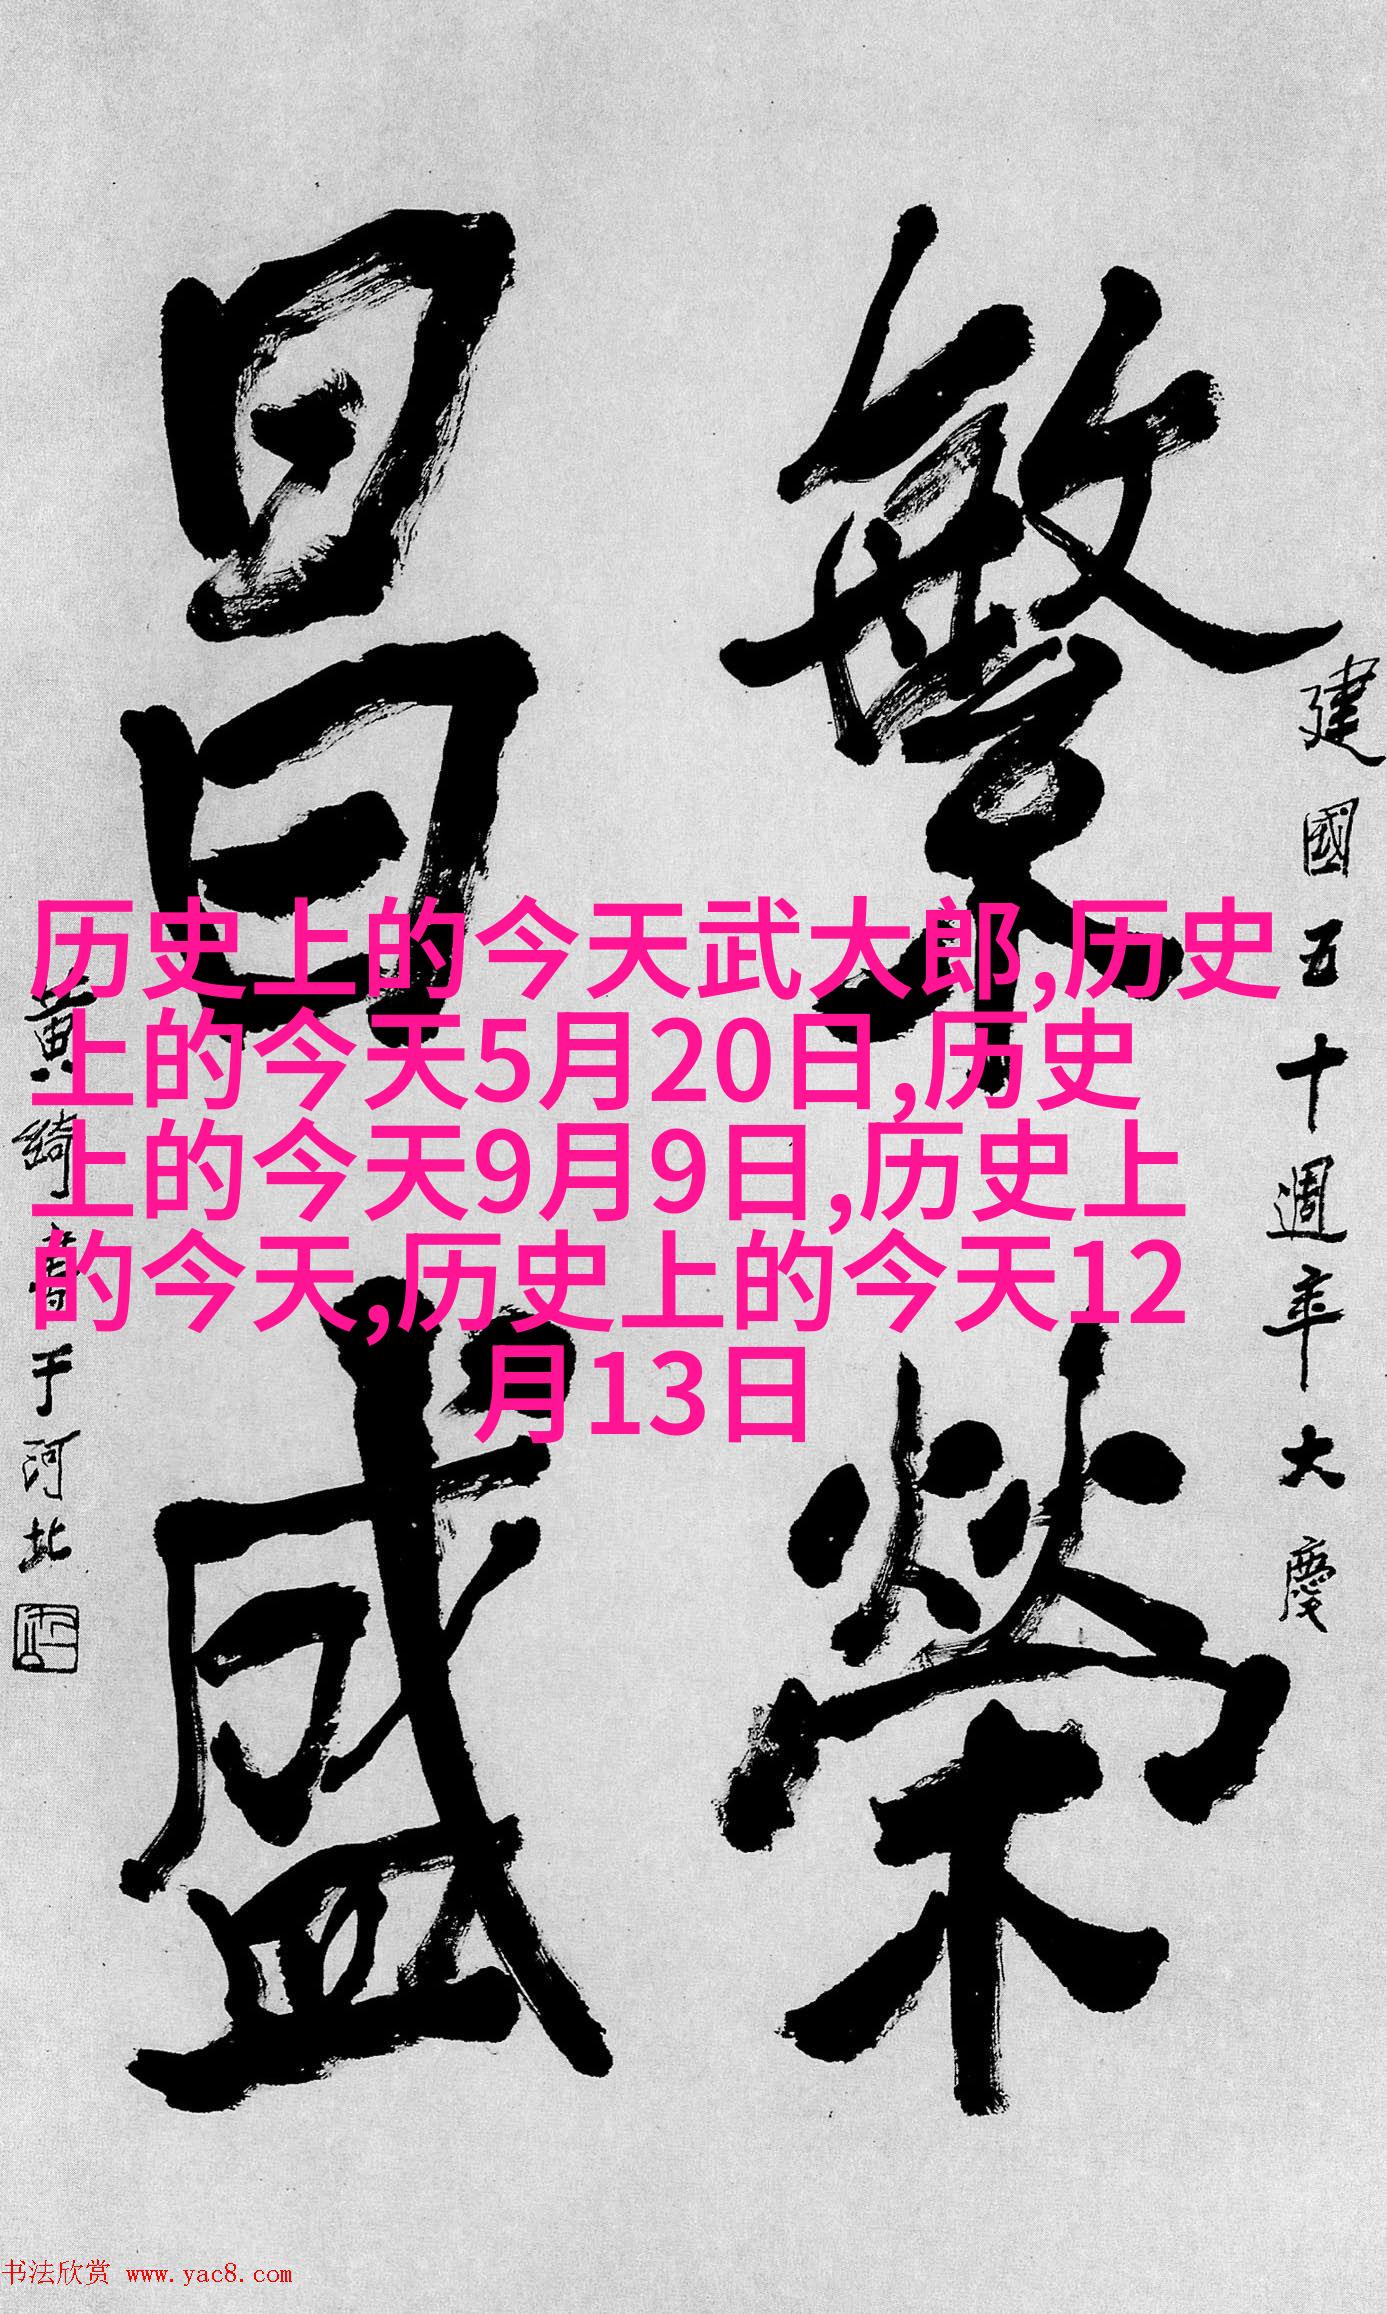 建國五十週年大慶
繁榮
昌盛
黄綺書于河北
历史上的今天武大郎,历史
上的今天5月20日,历史
上的今天9月9日,历史上
的今天,历史上的今天12
月13日
书法欣赏 www.yac8.com